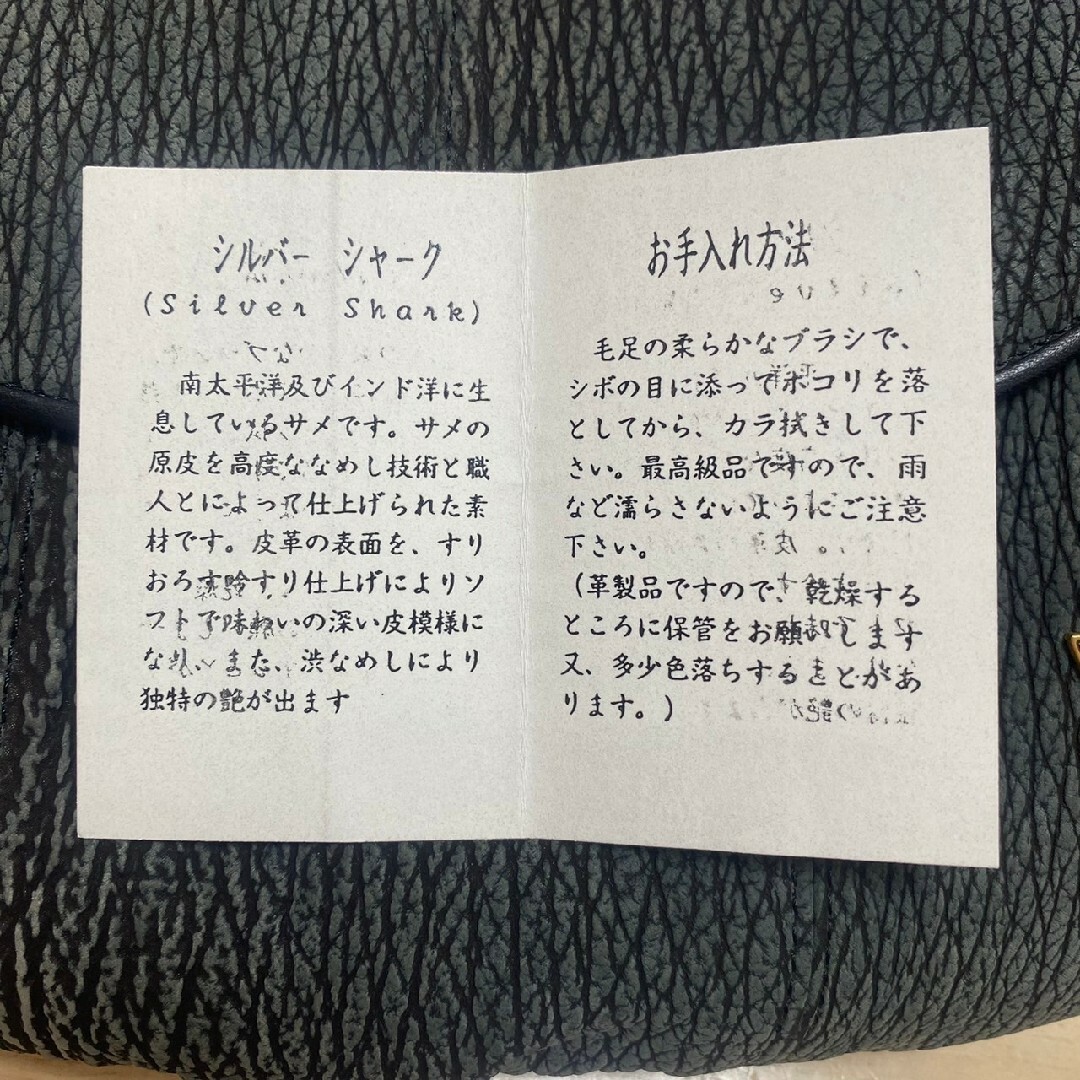 シルバー シャーク
(Silver Shark)
南太平洋及びインド洋に生
息しているサメです。サメの
原皮を高度ななめし技術と職
人とによって仕上げられた素
材です。皮革の表面を、すり
おろす すり仕上げによりソ
フトで味わいの深い皮模様に
なり、また、渋なめしにより
独特の艶が出ます
お手入れ方法
毛足の柔らかなブラシで、
シボの目に添ってホコリを落
としてから、カラ拭きして下
さい。最高級品ですので、雨
など濡らさないようにご注意
下さい。
(革製品ですので、乾燥する
ところに保管をお願いします
又、多少色落ちすることがあ
ります。)